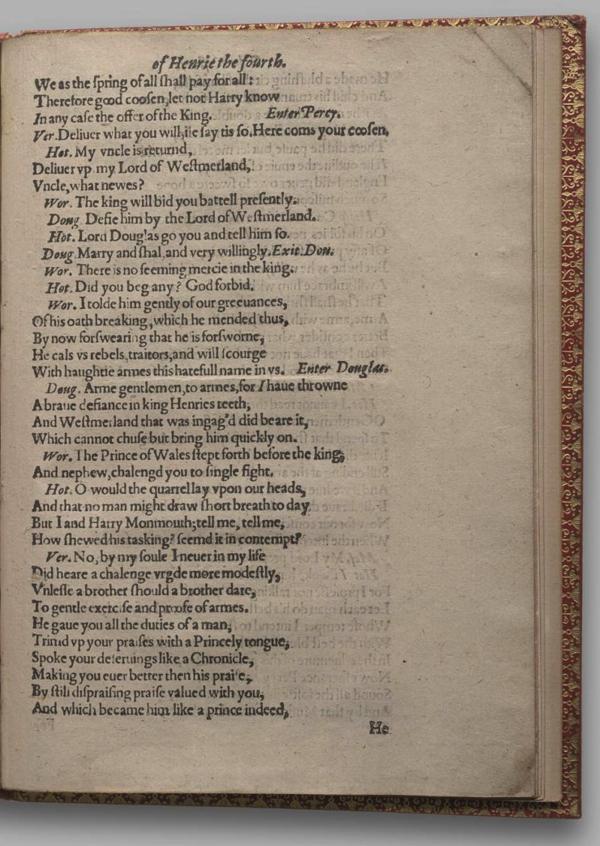 of Henrie the fourth.
We as the spring of all shall pay for all:
Therefore good coosen, let not Harry know
In any case the offer of the King. Enter Percy.
Ver. Deliuer what you will, ile say tis so. Here coms your coosen,
Hot. My vncle is returnd,
Deliuer vp my Lord of Westmerland,
Vncle, what newes?
Wor. The king will bid you battell presently.
Doug. Defie him by the Lord of Westmerland.
Hot. Lord Douglas go you and tell him so.
Doug. Marry and shal, and very willingly. Exit Dou.
Wor. There is no seeming mercie in the king.
Hot. Did you beg any? God forbid.
Wor. I tolde him gently of our greeuances,
Of his oath breaking, which he mended thus,
By now forswearing that he is forsworne,
He cals vs rebels, traitors, and will scourge
With haughtie armes this hatefull name in vs. Enter Douglas.
Doug. Arme gentlemen, to armes, for I haue throwne
A braue defiance in king Henries teeth,
And Westmerland that was ingag'd did beare it,
Which cannot chuse but bring him quickly on.
Wor. The Prince of Wales stept forth before the king,
And nephew, chalengd you to single fight.
Hot. O would the quarrel lay vpon our heads,
And that no man might draw short breath to day
But I and Harry Monmouth; tell me, tell me,
How shewed his tasking? seemd it in contempt?
Ver. No, by my soule I neuer in my life
Did heare a chalenge vrgde more modestly,
Vnlesse a brother should a brother dare,
To gentle exercise and proofe of armes.
He gaue you all the duties of a man,
Trimd vp your praises with a Princely tongue,
Spoke your deseruings like a Chronicle,
Making you euer better then his praise,
By still dispraising praise valued with you,
And which became him like a prince indeed,
He